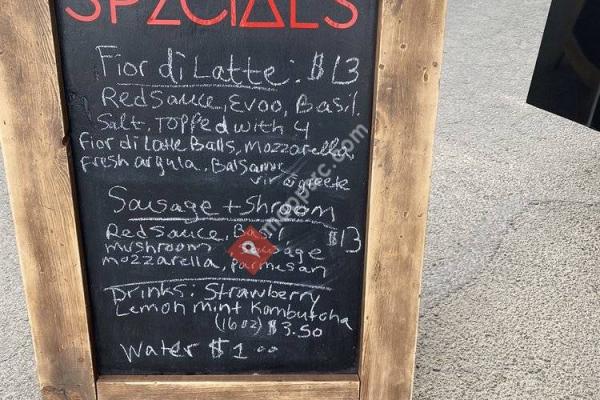 SPECIALS
Fior di Latte: $13
Red Sauce, Evoo, Basil
Salt, Topped with 4
Fior di Latte Balls, Mozzarella,
Fresh argula, Balsamic
Sausage + Shroom
Red Sauce, Basil $13
mushroom, Sausage
mozzarella, Parmesan
Drinks: Strawberry
Lemon mint Kombutcha
(16oz) $3.50
Water $1.00